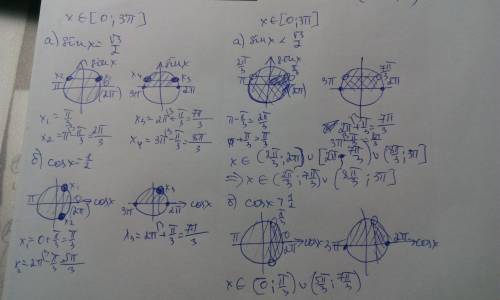 x ∈ [0; 3π]
а) sin x = √3/2
sin x
x2
π
0
(2π)
sin x
x4
x3
3π
2π
x1 = π/3
x2 = π - π/3 = 2π/3
x3 = 2π + π/3 = 7π/3
x4 = 3π - π/3 = 8π/3
б) cos x = 1/2
x1
π
0
(2π)
cos x
x2
x3
3π
2π
cos x
x1 = 0 + π/3 = π/3
x2 = 2π - π/3 = 5π/3
x3 = 2π + π/3 = 7π/3
x ∈ [0; 3π]
а) sin x < √3/2
sin x
2π/3
π
(2π)
3π
2π
π - π/3 = 2π/3
2π + π/3 = 7π/3
x ∈ (2π/3; 2π] ∪ [2π; 7π/3) ∪ (8π/3; 3π]
⇒ x ∈ (2π/3; 7π/3) ∪ (8π/3; 3π]
б) cos x > 1/2
π
0
cos x
2π
cos x
x ∈ (0; π/3) ∪ (5π/3; 7π/3)